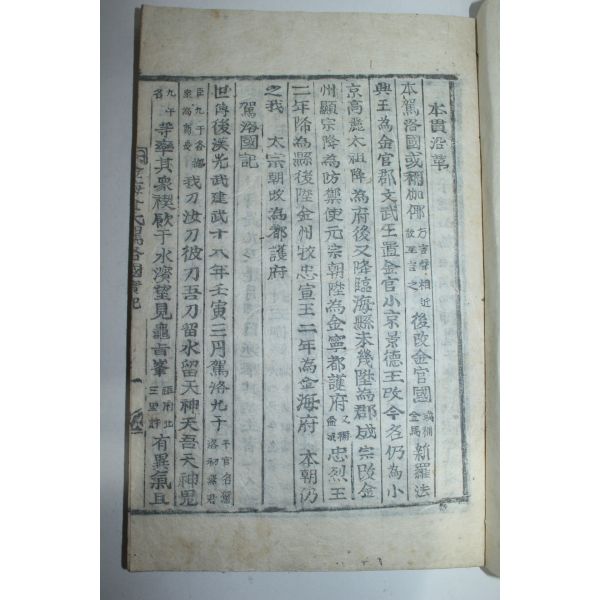 本貫沿革
本駕洛國或稱伽倻方言聲相近故互言之後改金官國或稱金馬新羅法
興王為金官郡文武王置金官小京景德王改今名仍為小
京高麗太祖降為府後又降臨海縣未幾陞為郡成宗改金
州顯宗降為防禦使元宗朝陞為金寧都護府又稱忠烈王
二年降為縣後陞金州牧忠宣王二年為金海府 本朝仍
之我 太宗朝改為都護府
駕洛國記
世傳後漢光武建武十八年壬寅三月駕洛九干干官名
臣九干各 我刀汝刀彼刀吾刀留水留天神天吾天神鬼
九干等率其衆禊飮于水濱望見龜旨峯北三里許有異氣且
金氏駕洛國實記